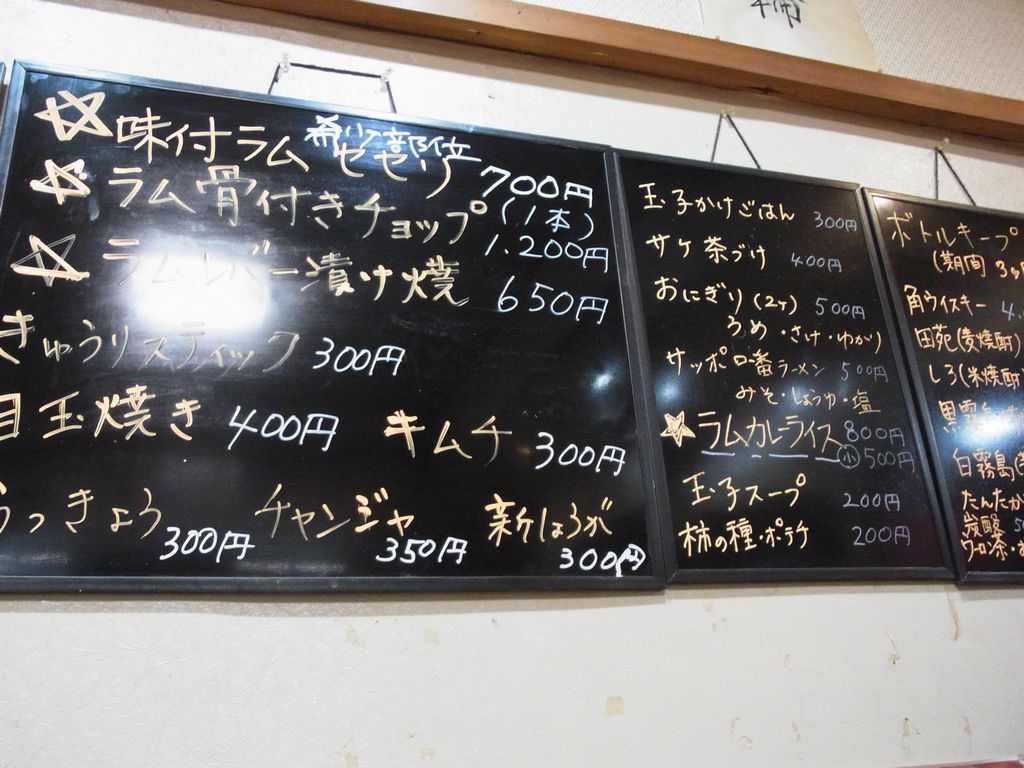 希少部位
☆味付ラム セセリ 700円
☆ラム骨付きチョップ(1本) 1.200円
☆ラムレバー漬け焼 650円
きゅうりスティック 300円
目玉焼き 400円 キムチ 300円
らっきょう 300円 チャンジャ 350円 新しょうが 300円
玉子かけごはん 300円
サケ茶づけ 400円
おにぎり(2ケ) 500円
うめ・さけ・ゆかり)
サッポロ一番ラーメン 500円
みそ・しょうゆ・塩
☆ラムカレーライス 800円
小 500円
玉子スープ 200円
柿の種・ポテチ 200円
ボトルキープ
(期間 3ヶ
角ウイスキー 4.
田苑(麦焼酎)
しろ(米焼酎)
黒霧島
白霧島(
たんたか
炭酸 5
ウーロン茶・